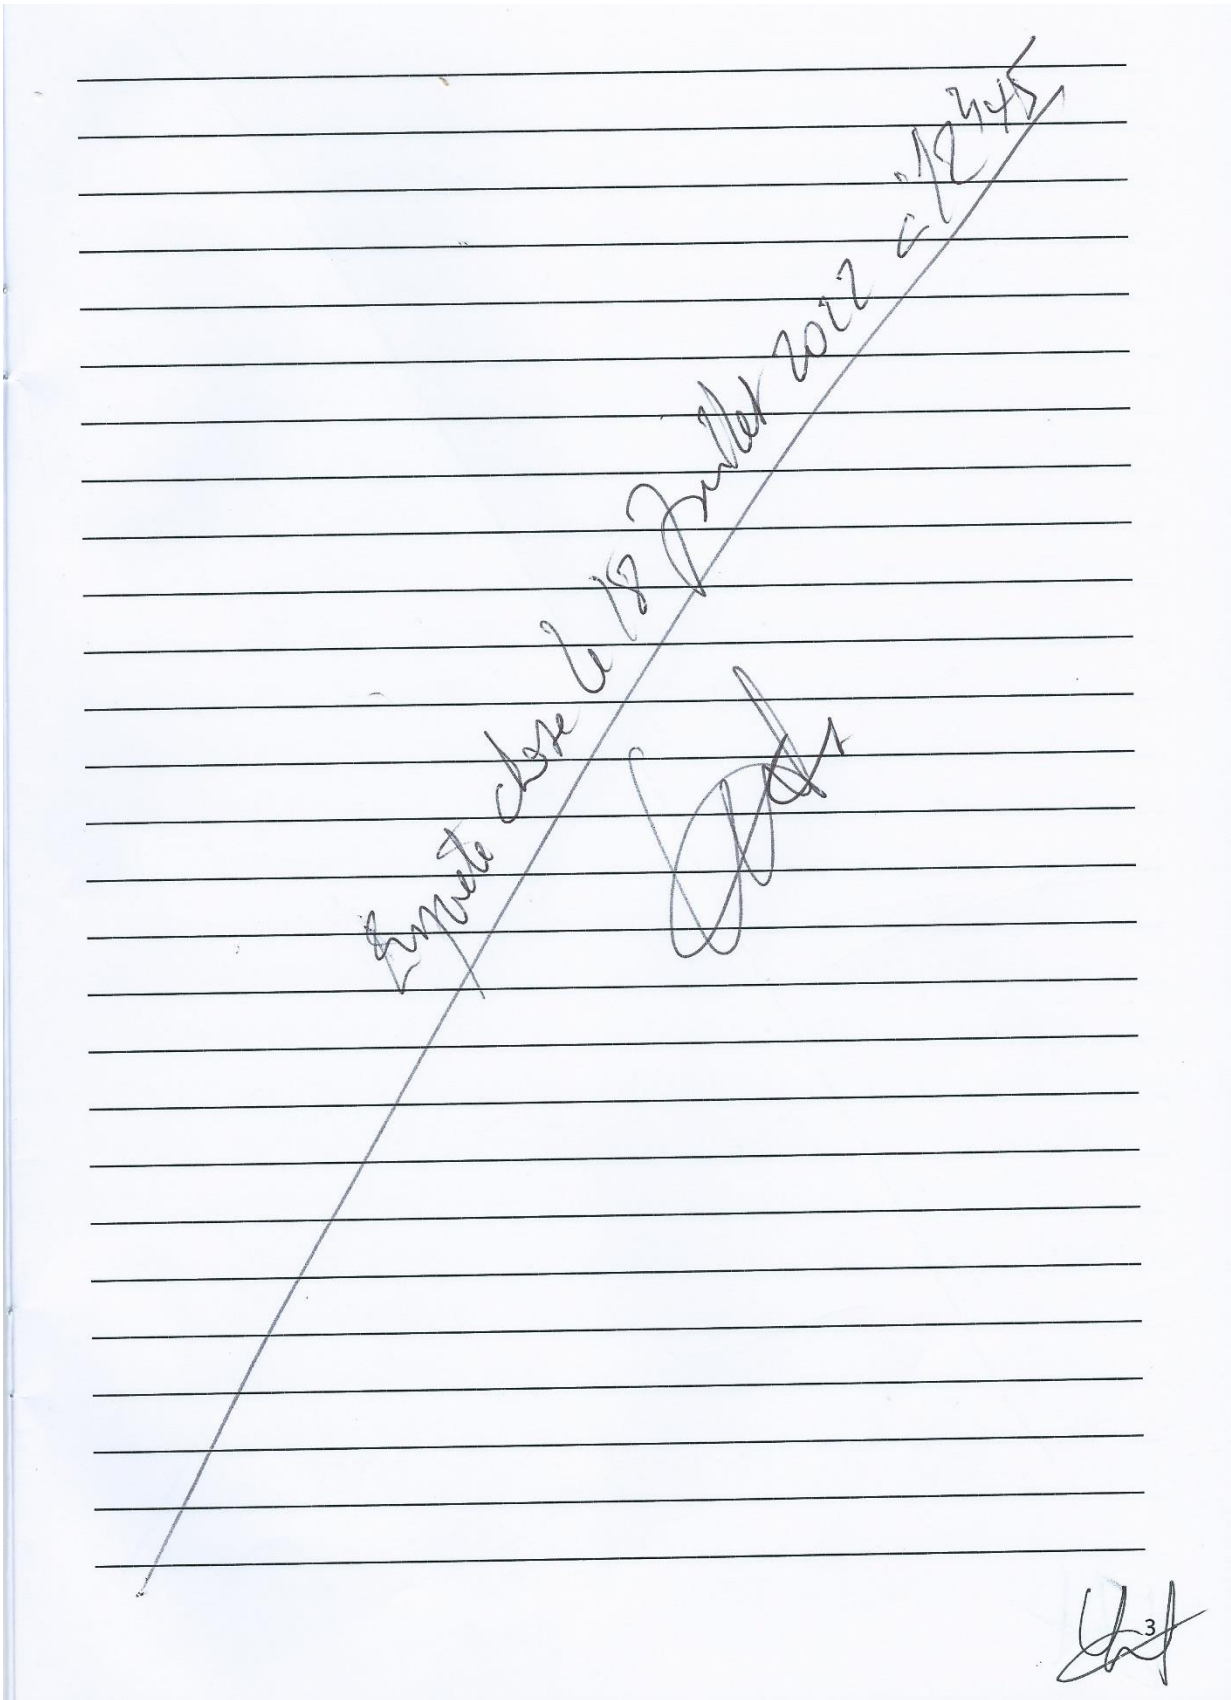 Enquête close le 18 Juillet 2022 à 12h45
3